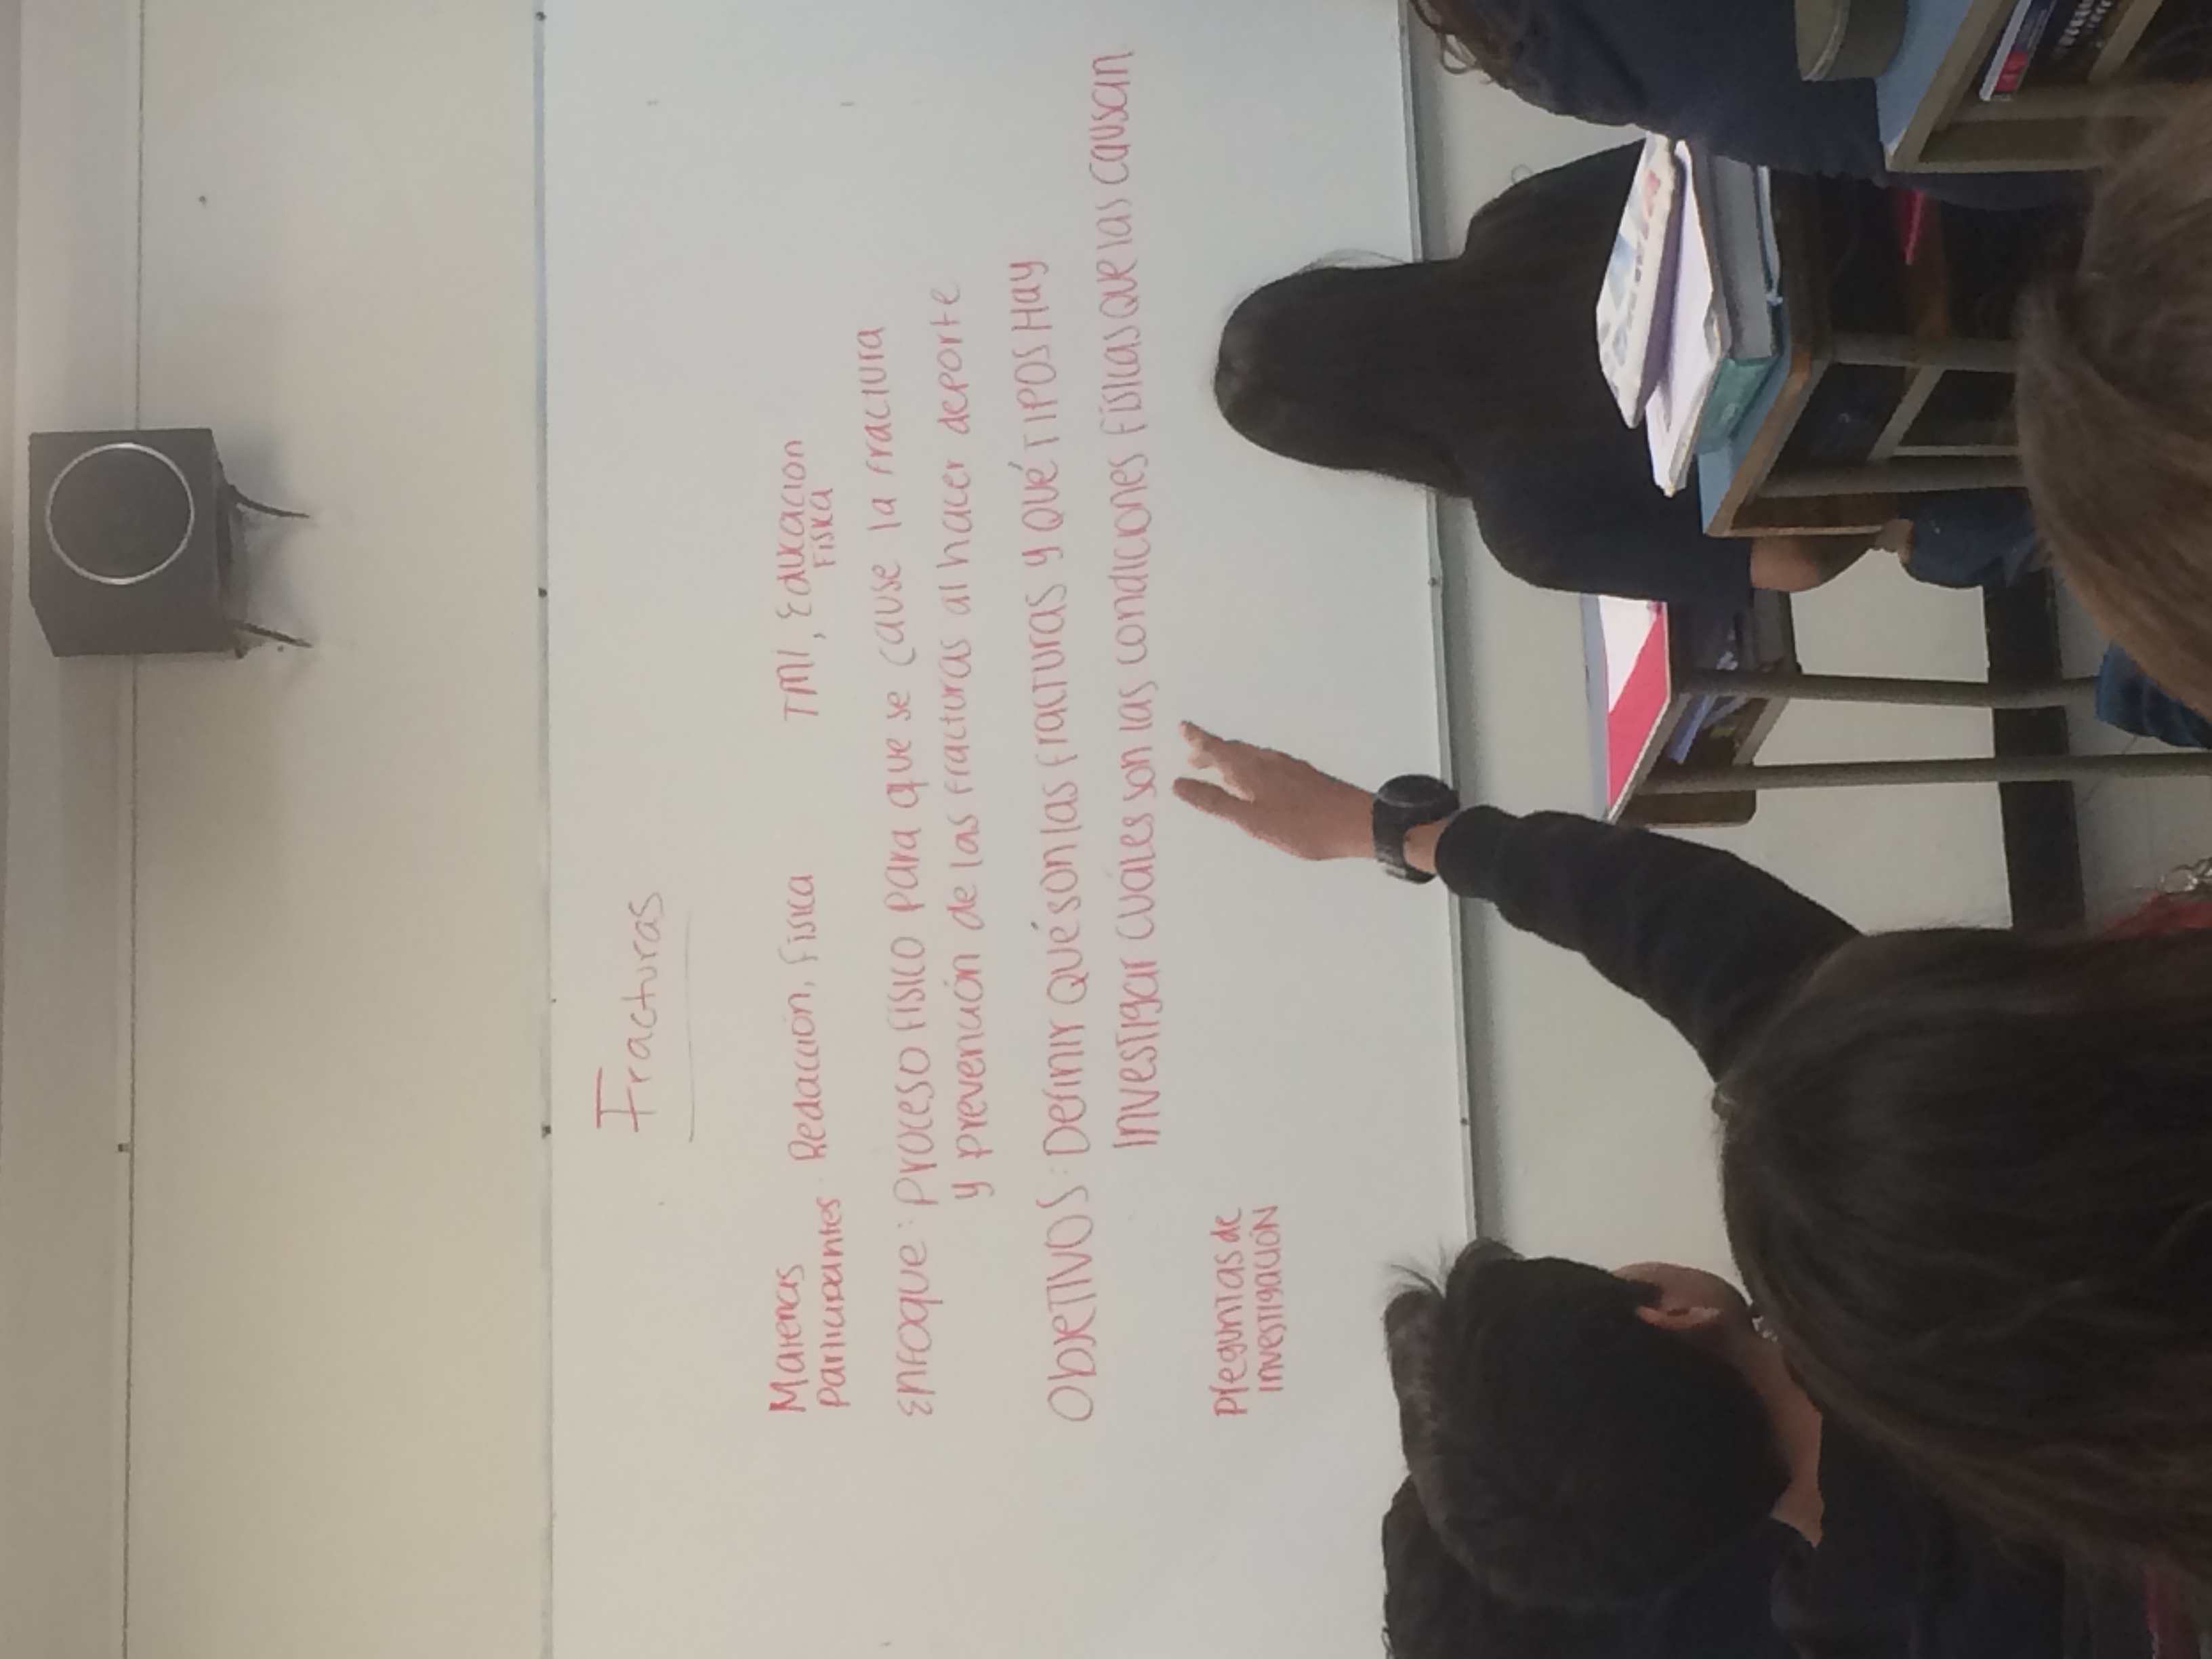 Fracturas
Materias
Participantes Redacción, Física TMI, Educacion
Física
Enfoque: Proceso físico para que se cause la fractura
y prevención de las fracturas al hacer deporte
Objetivos: Definir qué son las fracturas y qué tipos hay
Investigar cuáles son las condiciones físicas que las causan
Preguntas de
investigación